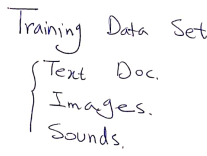 Training Data Set
Text Doc.
Images.
Sounds.